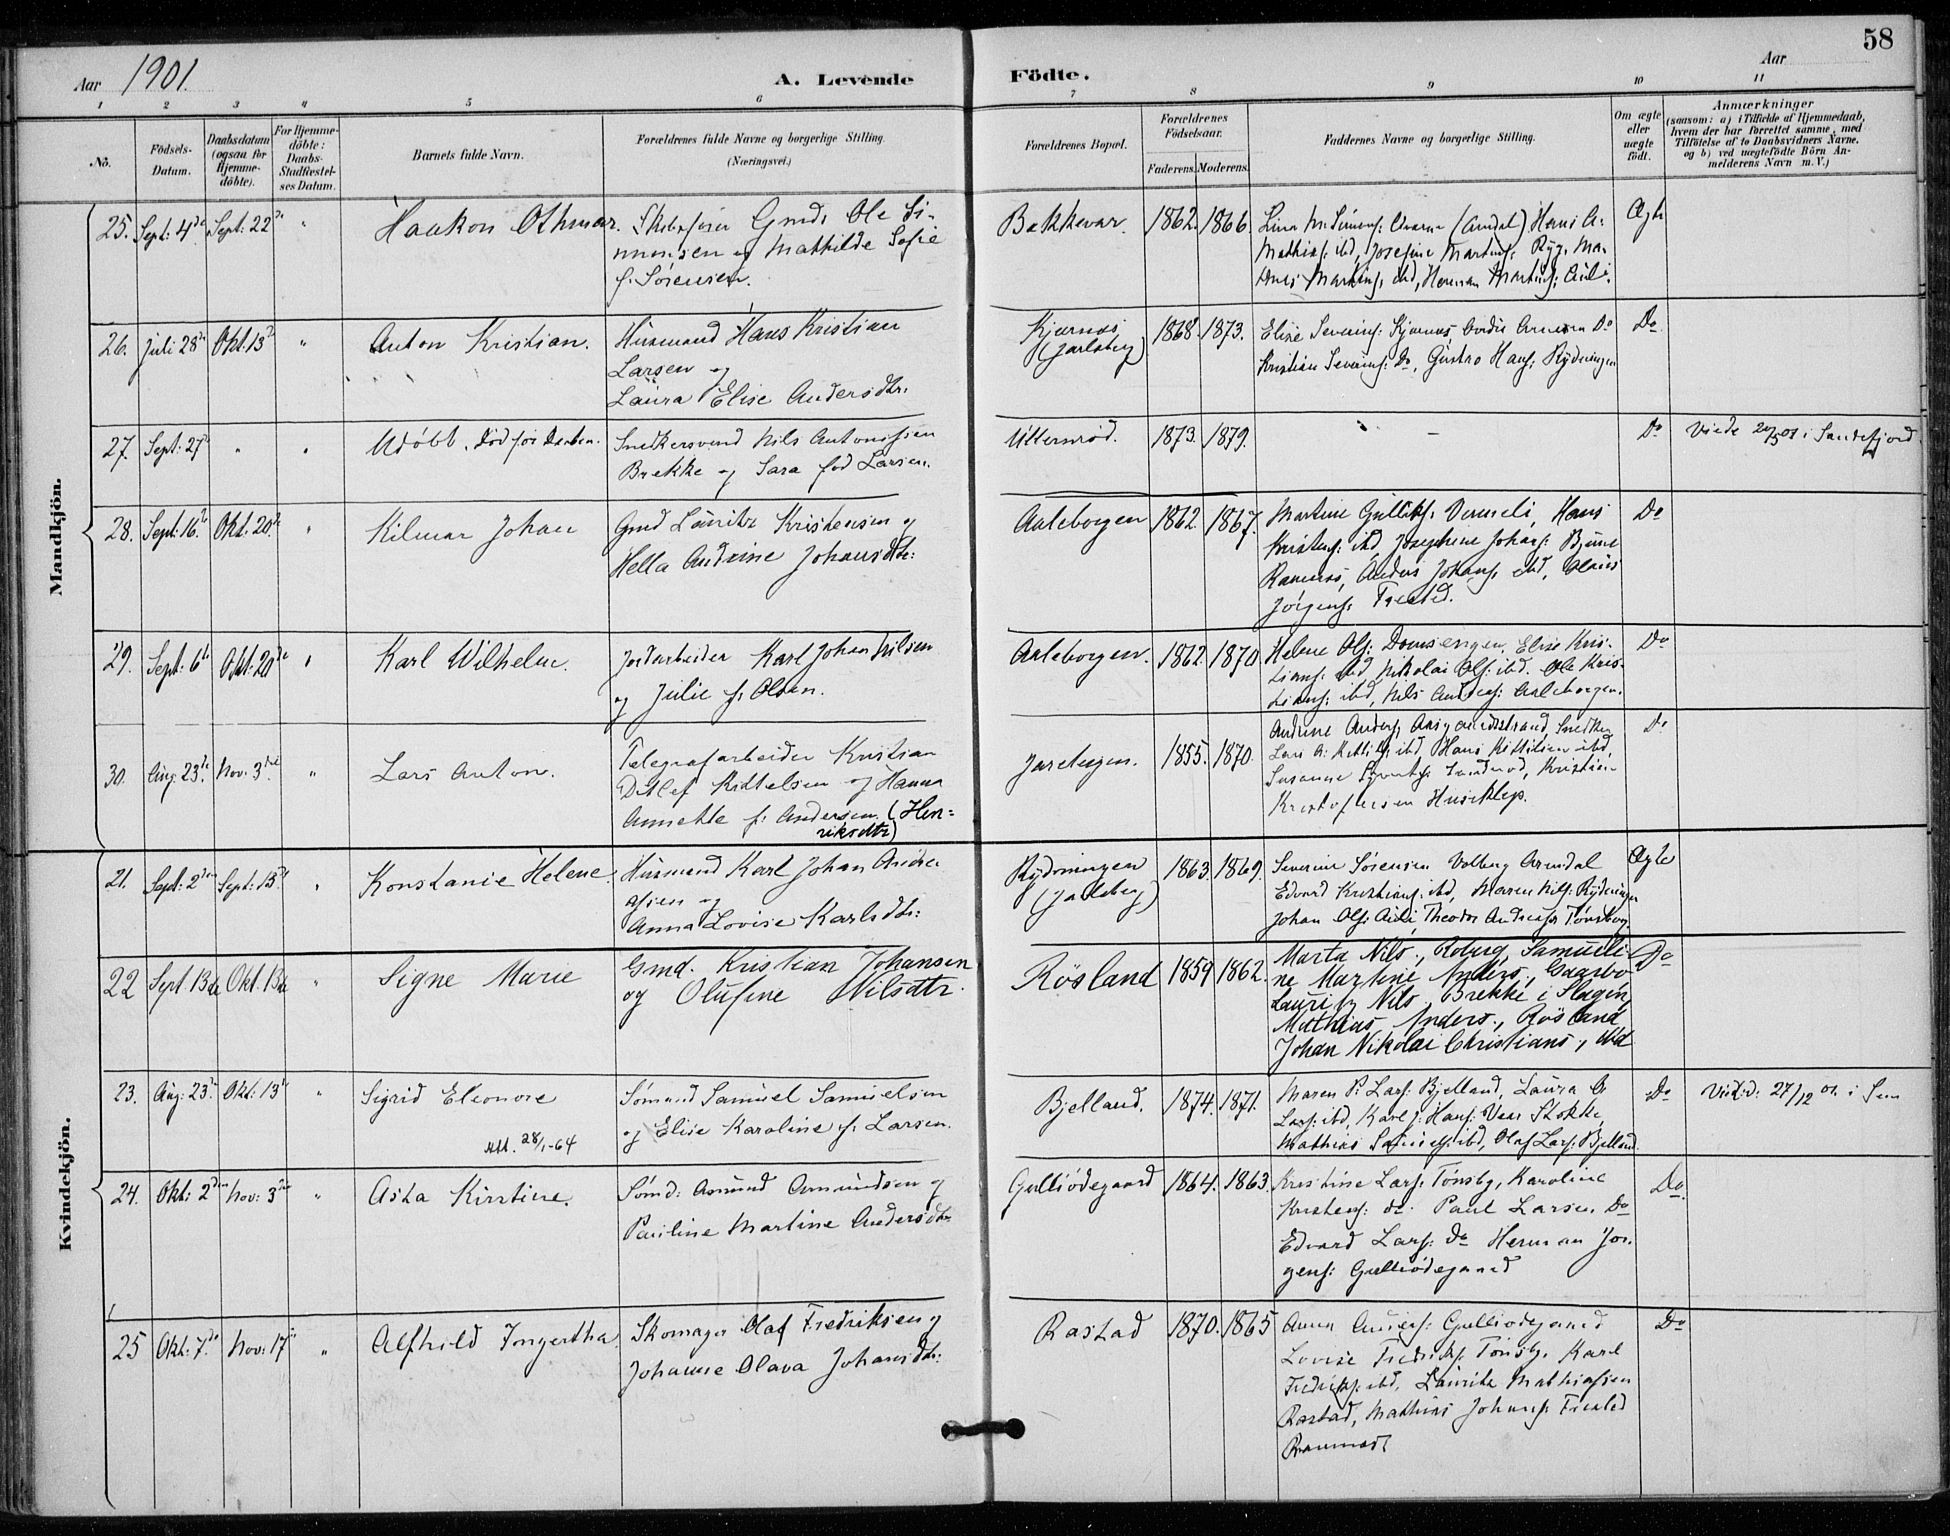 58
Aar 1901.
A. Levende Födte.
Aar
1 2 3 4 5 6 7 8 9 10 11
No.
Födsels-Datum.
Daabsdatum (ogsaa for Hjemmedöbte).
For Hjemmedöbte: Daabs-Stadfæstelses Datum.
Barnets fulde Navn.
Forældrenes fulde Navne og borgerlige Stilling.
(Næringsvei.)
Forældrenes Bopæl.
Forældrenes Födselsaar.
Faderens. Moderens.
Faddernes Navne og borgerlige Stilling.
Om ægte eller uægte födt.
Anmærkninger
(saasom: a) i Tilfælde af Hjemmedaab, hvem der har forrettet samme, med Tilföielse af to Daabsvidners Navne. og b) ved uægtefödte Börn Anmelderens Navn m. V.)
Mandkjön.
25. Sept: 4de Sept: 22de " Haakon Othmar. Skibsfører Gmds Ole Simonsen og Mathilde Sofie f. Sørensen. Bakkevar. 1862. 1866. Hans A. Mathias: ibd, Josefine Martins: Ryg, Martins: ibd, Herman Martins: Auli. Ægte
26. Juli 28de Okt. 13de " Anton Kristian. Husmand Hans Kristian
Larsen og
Laura Elise Andersdtr. Kjærnæs (Jarlsberg) 1868. 1873. Elise Severins: Kjærnæs, Arnesen Do
Kristian Severins: Do, Gustav Hans: Rydningen Do
27. Sept: 27de " " Udøbt. Død før Daaben. Snedkersvend Nils Antonssen
Brekke og Sara fød Larsen. Ullernrød. 1873. 1879. – Do Viede 20/5 01 i Sandefjord
28. Sept: 16de Okt: 20de " Hilmar Johan Gmd Lauritz Kristensen og
Hella Andrine Johansdtr: Aaleborgen 1862. 1867. Martine Gulliks: Vermeli, Hans
Kristens: ibd, Josephine Johans: Bjune
Ramnæs, Anders Johans: ibd, Olaus
Jørgens: Frested. Do
29. Sept: 6te Okt: 20de " Karl Wilhelm. Jordarbeider Karl Johan Nilsen
og Julie f. Olsen. Aaleborgen. 1862. 1870. Helene Ols: Domsengen, Elise Kristians: ibd, Nikolai Ols: ibd. Ole Kristians: ibd, Nils Andreas: Aaleborgen. Do
30. Aug: 23de Nov: 3die " Lars Anton. Telegrafarbeider Kristian
Ditlef Kittelsen og Hanna
Annette f: Andersen. (Henriksdtr) Jareteigen. 1855. 1870. Andrine Anders: Aasgaardstrand, Snedker
Lars A. Kittils: ibd, Hans Kittilsen ibd,
Susanne Syverts: Kristian
Kristofersen Huseklep. Do
Kvindekjön.
21. Sept: 2den Sept: 15de " Konstanse Helene. Husmand Karl Johan Andreassen og
Anna Lovise Karlsdtr: Rydningen (Jarlsberg) 1863. 1869. Severine Sørensen Volberg Arendal
Edvard Kristians: ibd, Maren Nils: Rydningen
Johan Ols: Auli, Theodor Andreas: Tønsberg. Ægte
22 Sept 13de Okt. 13de " Signe Marie Gmd. Kristian Johansen
og Olufine Nilsdtr. Røsland 1859 1862. Marta Nils., Roberg, Samueline Martine Anders., Gaasbo
Lauritz Nils. Brekke i Slagen,
Mathias Anders., Røsland
Johan Nikolai Christians., ibd Do
23. Aug: 23de Okt: 13de " Sigrid Eleonore
Att. 28/1-64 Sømand Samuel Samuelsen
og Elise Karoline f. Larsen. Bjelland. 1874. 1871. Maren P. Lars: Bjelland, Laura
Lars: ibd, Karl J. Hans: Vear Stokke,
Mathias Samuels: ibd, Olaf Lars: Bjelland Do Viet d: 27/12 01. i Sem
24. Okt: 2den Nov: 3die " Asta Kirstine. Sømd: Asmund Amundsen og
Pauline Martine Andersdtr Gulliødegaard 1864. 1863. Kristine Lars: Tønsbg, Karoline
Kristens: do. Paul Larsen Do
Edvard Lars: do Herman Jørgens: Gulliødegaard Do.
25 Okt: 7de Nov: 17de " Alfhild Ingertha. Skomager Olaf Fredriksen og
Johanne Olava Johansdtr: Rastad 1870. 1865 Anna Anders: Gulliødegaard
Lovise Fredriks: Tønsbg. Karl
Fredriks: ibd, Lauritz Mathiassen
Rastad, Mathias Johans: Frested
Ramnæs Do